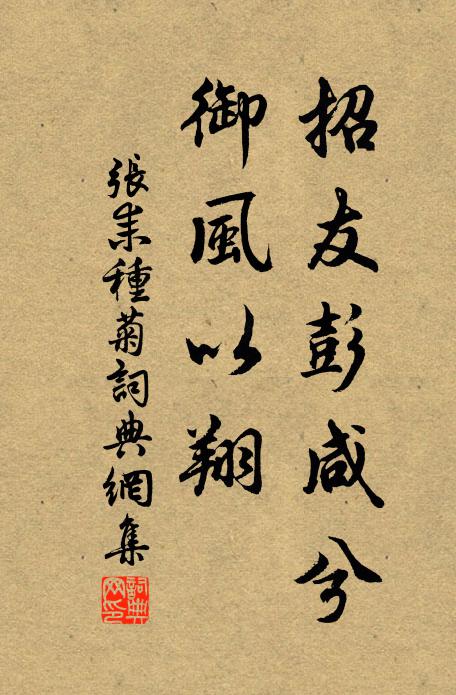 招友彭咸兮
御風以翔
張耒種菊詞典網集
詞典
网印